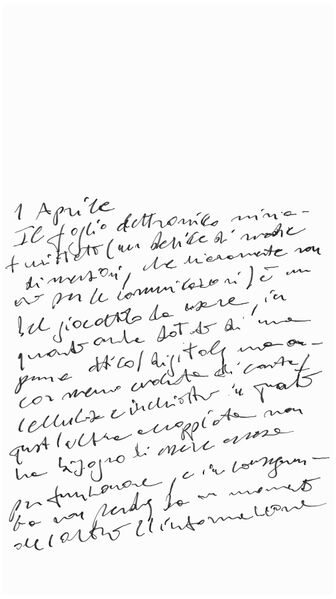 1 Aprile
Il foglio elettronico minia-
turizzato (un di
dimensioni, che non
per le comunicazioni) è un
bel giocattolo da usare, in
quanto anche dotato di una
penna ottico/digitale ma an-
cor meno di carta/
cellulosa e inchiostro in quanto
quest'altra accoppiata non
ha bisogno di essere
per funzionare, e in conseguen-
za non perde da un momento
all'altro l'informazione